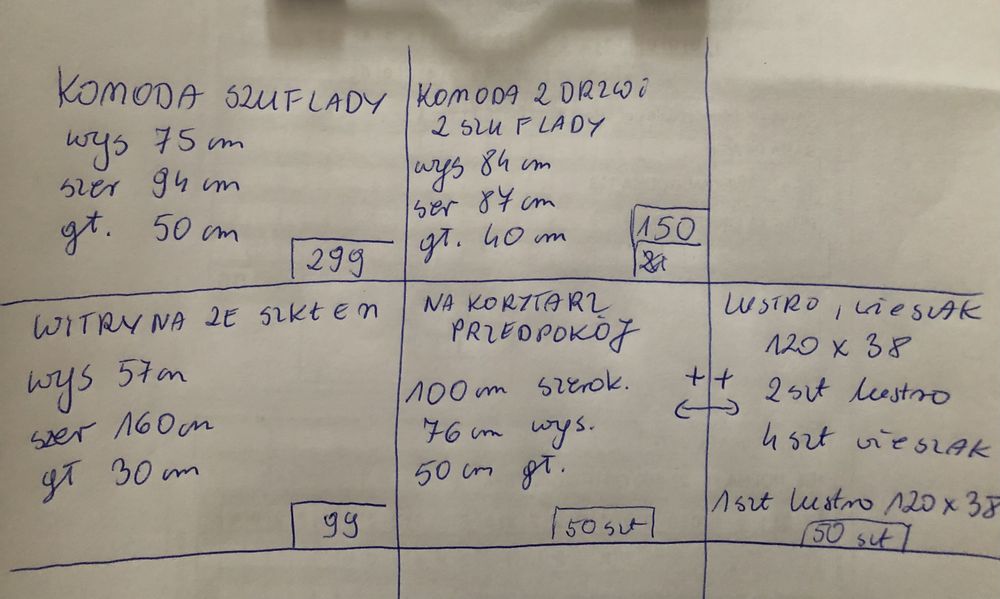 KOMODA SZUFLADY
wys 75 cm
szer 94 cm
gł. 50 cm
299
KOMODA 2 DRZWI
2 SZUFLADY
wys 84 cm
szer 87 cm
gł. 40 cm
150
zł
WITRYNA ZE SZKŁEM
wys 57 cm
szer 160 cm
gł 30 cm
99
NA KORYTARZ
PRZEDPOKÓJ
100 cm szerok.
76 cm wys.
50 cm gł.
50 szt
++
LUSTRO, WIESZAK
120 x 38
2 szt lustro
4 szt WIESZAK
1 szt lustro 120 x 38
50 szt